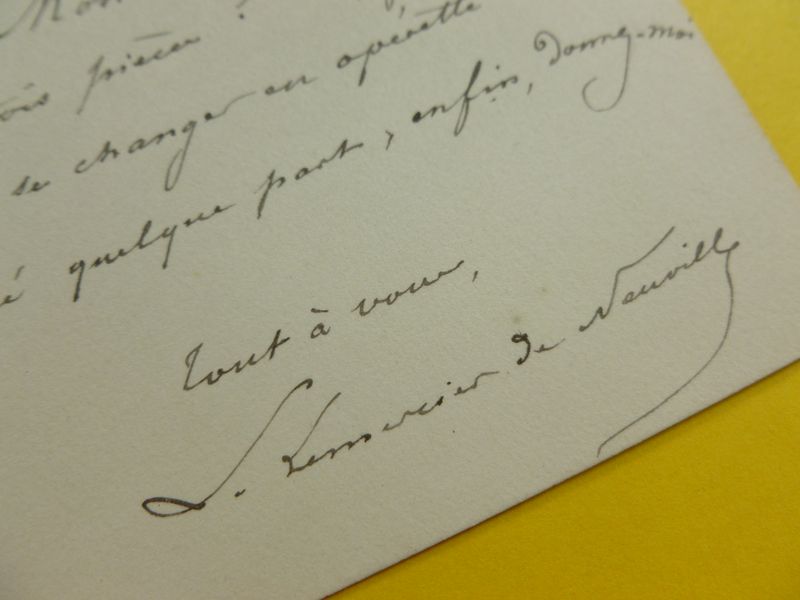 Mon
pièces ?
se changer en opérette
quelque part, enfin, donnez-moi
Tout à vous,
L. Lemercier de Neuville